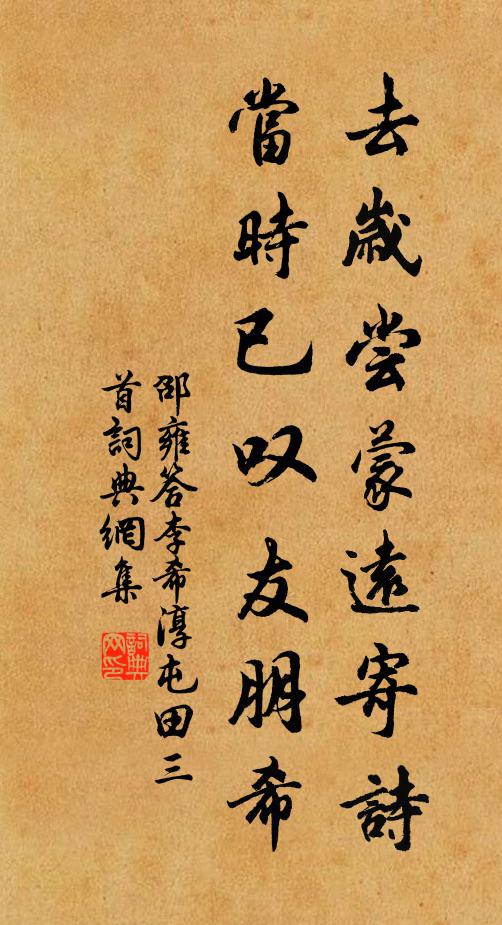 去歲尝蒙遠寄詩
當時已叹友朋希
邵雍答李希淳屯田三
首詞典網集
詞典
网印